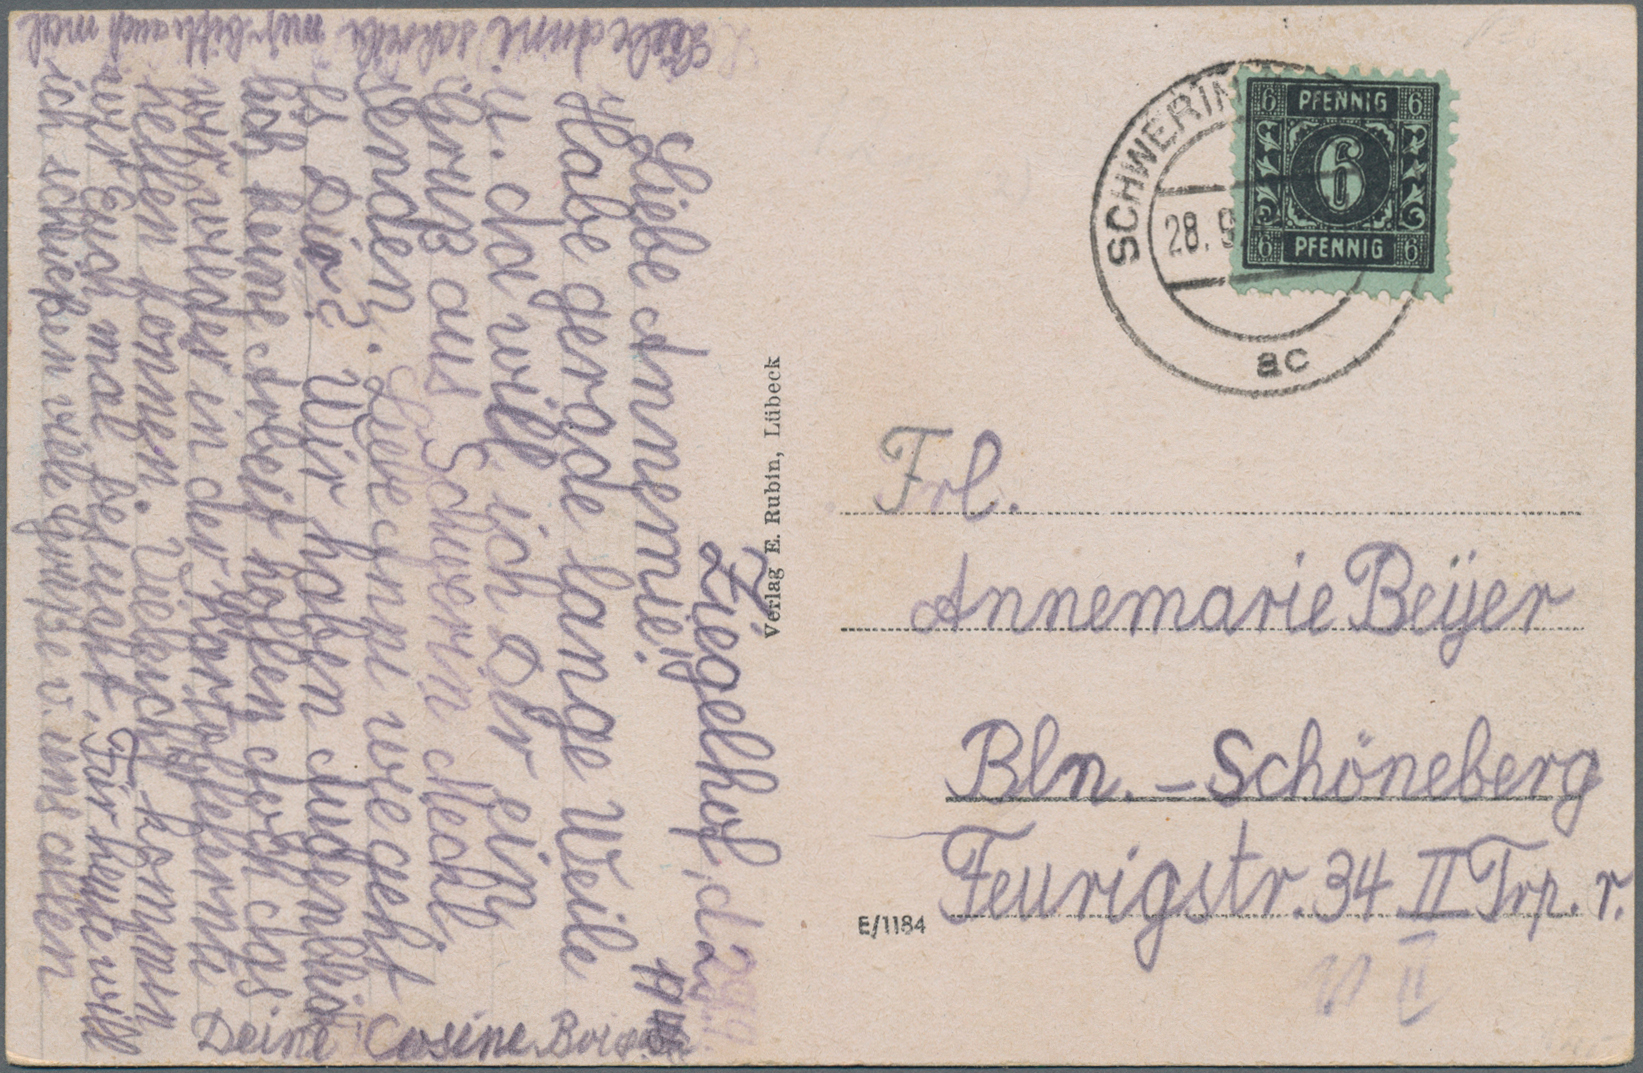 Ziegelhof, d. 29.
Liebe Annemie!
Habe gerade lange Weile
u. da will ich Dir ein
Gruß aus Schwerin Meckl
senden. Liebe Anni wie geht
es Dir? Wir haben Augenblick
keine Arbeit hoffen doch das
wir wieder in der Kartoffelernte
helfen können. Vieleicht kommen
wir Euch mal besuchen. Für heute will
ich schließen viele Grüße v. uns allen
Deine Cosine
Liebe Anni schreibe mir bitte auch mal
Verlag E. Rubin, Lübeck
SCHWERIN
28. 9.
ac
6 PFENNIG 6
6
6 PFENNIG 6
Frl.
Annemarie Beyer
Bln. - Schöneberg
Feurigstr. 34 II Trp. r.
E/1184
II